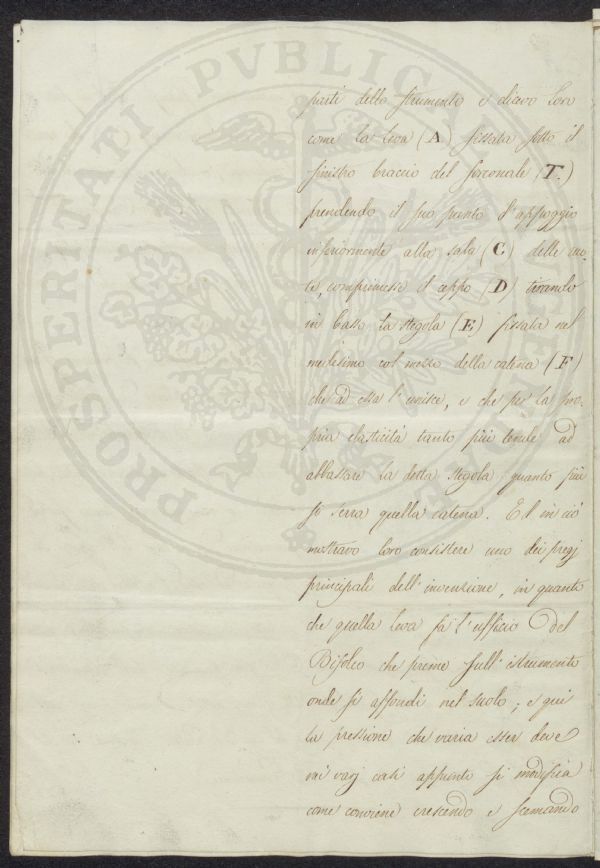 parti dello strumento e dicevo loro
come la leva (A) fissata sotto il
sinistro braccio del forconale (T.)
prendendo il suo punto d'appoggio
inferiormente alla sala (C) delle ruo-
te, comprimesse il ceppo (D) tirando
in basso la stegola (E) fissata nel
medesimo col mezzo della catena (F)
che ad essa l'unisce, e che per la pro-
pria elasticità tanto più tende ad
abbassare la detta stegola quanto più
si serra quella catena. Ed in ciò
mostravo loro consistere uno dei pregj
principali dell'invenzione, in quanto
che quella leva fa l'ufficio del
Bifolco che preme sull'istrumento
onde si affondi nel suolo; e qui
la pressione che varia esser deve
nei varj casi appunto si modifica
come conviene crescendo e scemando
PROSPERITATI PVBLICAE